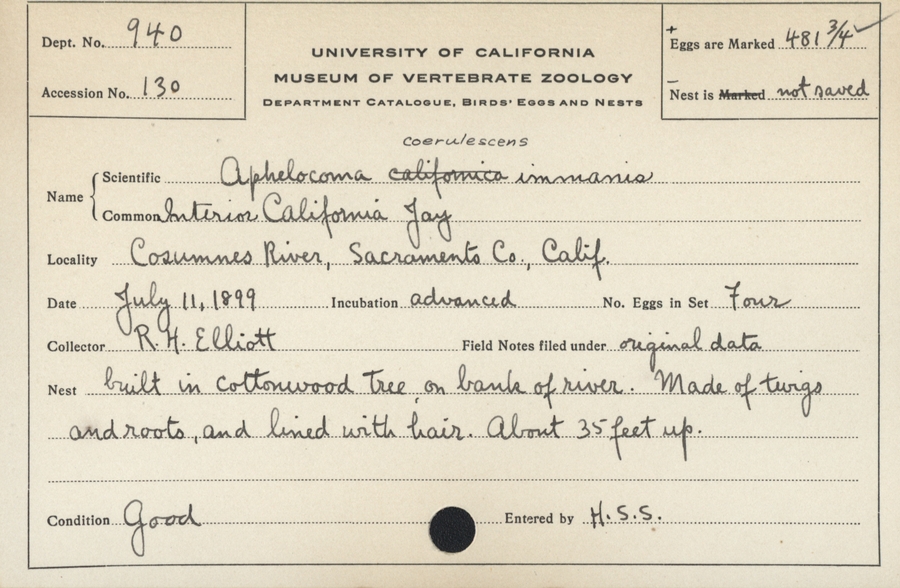 Dept. No. 940
Accession No. 130
UNIVERSITY OF CALIFORNIA
MUSEUM OF VERTEBRATE ZOOLOGY
DEPARTMENT CATALOGUE, BIRDS' EGGS AND NESTS
+
Eggs are Marked 481 3/4 ✓
–
Nest is Marked not saved
coerulescens
Name { Scientific Aphelocoma californica immanis
Common Interior California Jay
Locality Cosumnes River, Sacramento Co., Calif.
Date July 11, 1899 Incubation advanced No. Eggs in Set Four
Collector R. H. Elliott Field Notes filed under original data
Nest built in cottonwood tree, on bank of river. Made of twigs
and roots, and lined with hair. About 35 feet up.
Condition Good Entered by H. S. S.